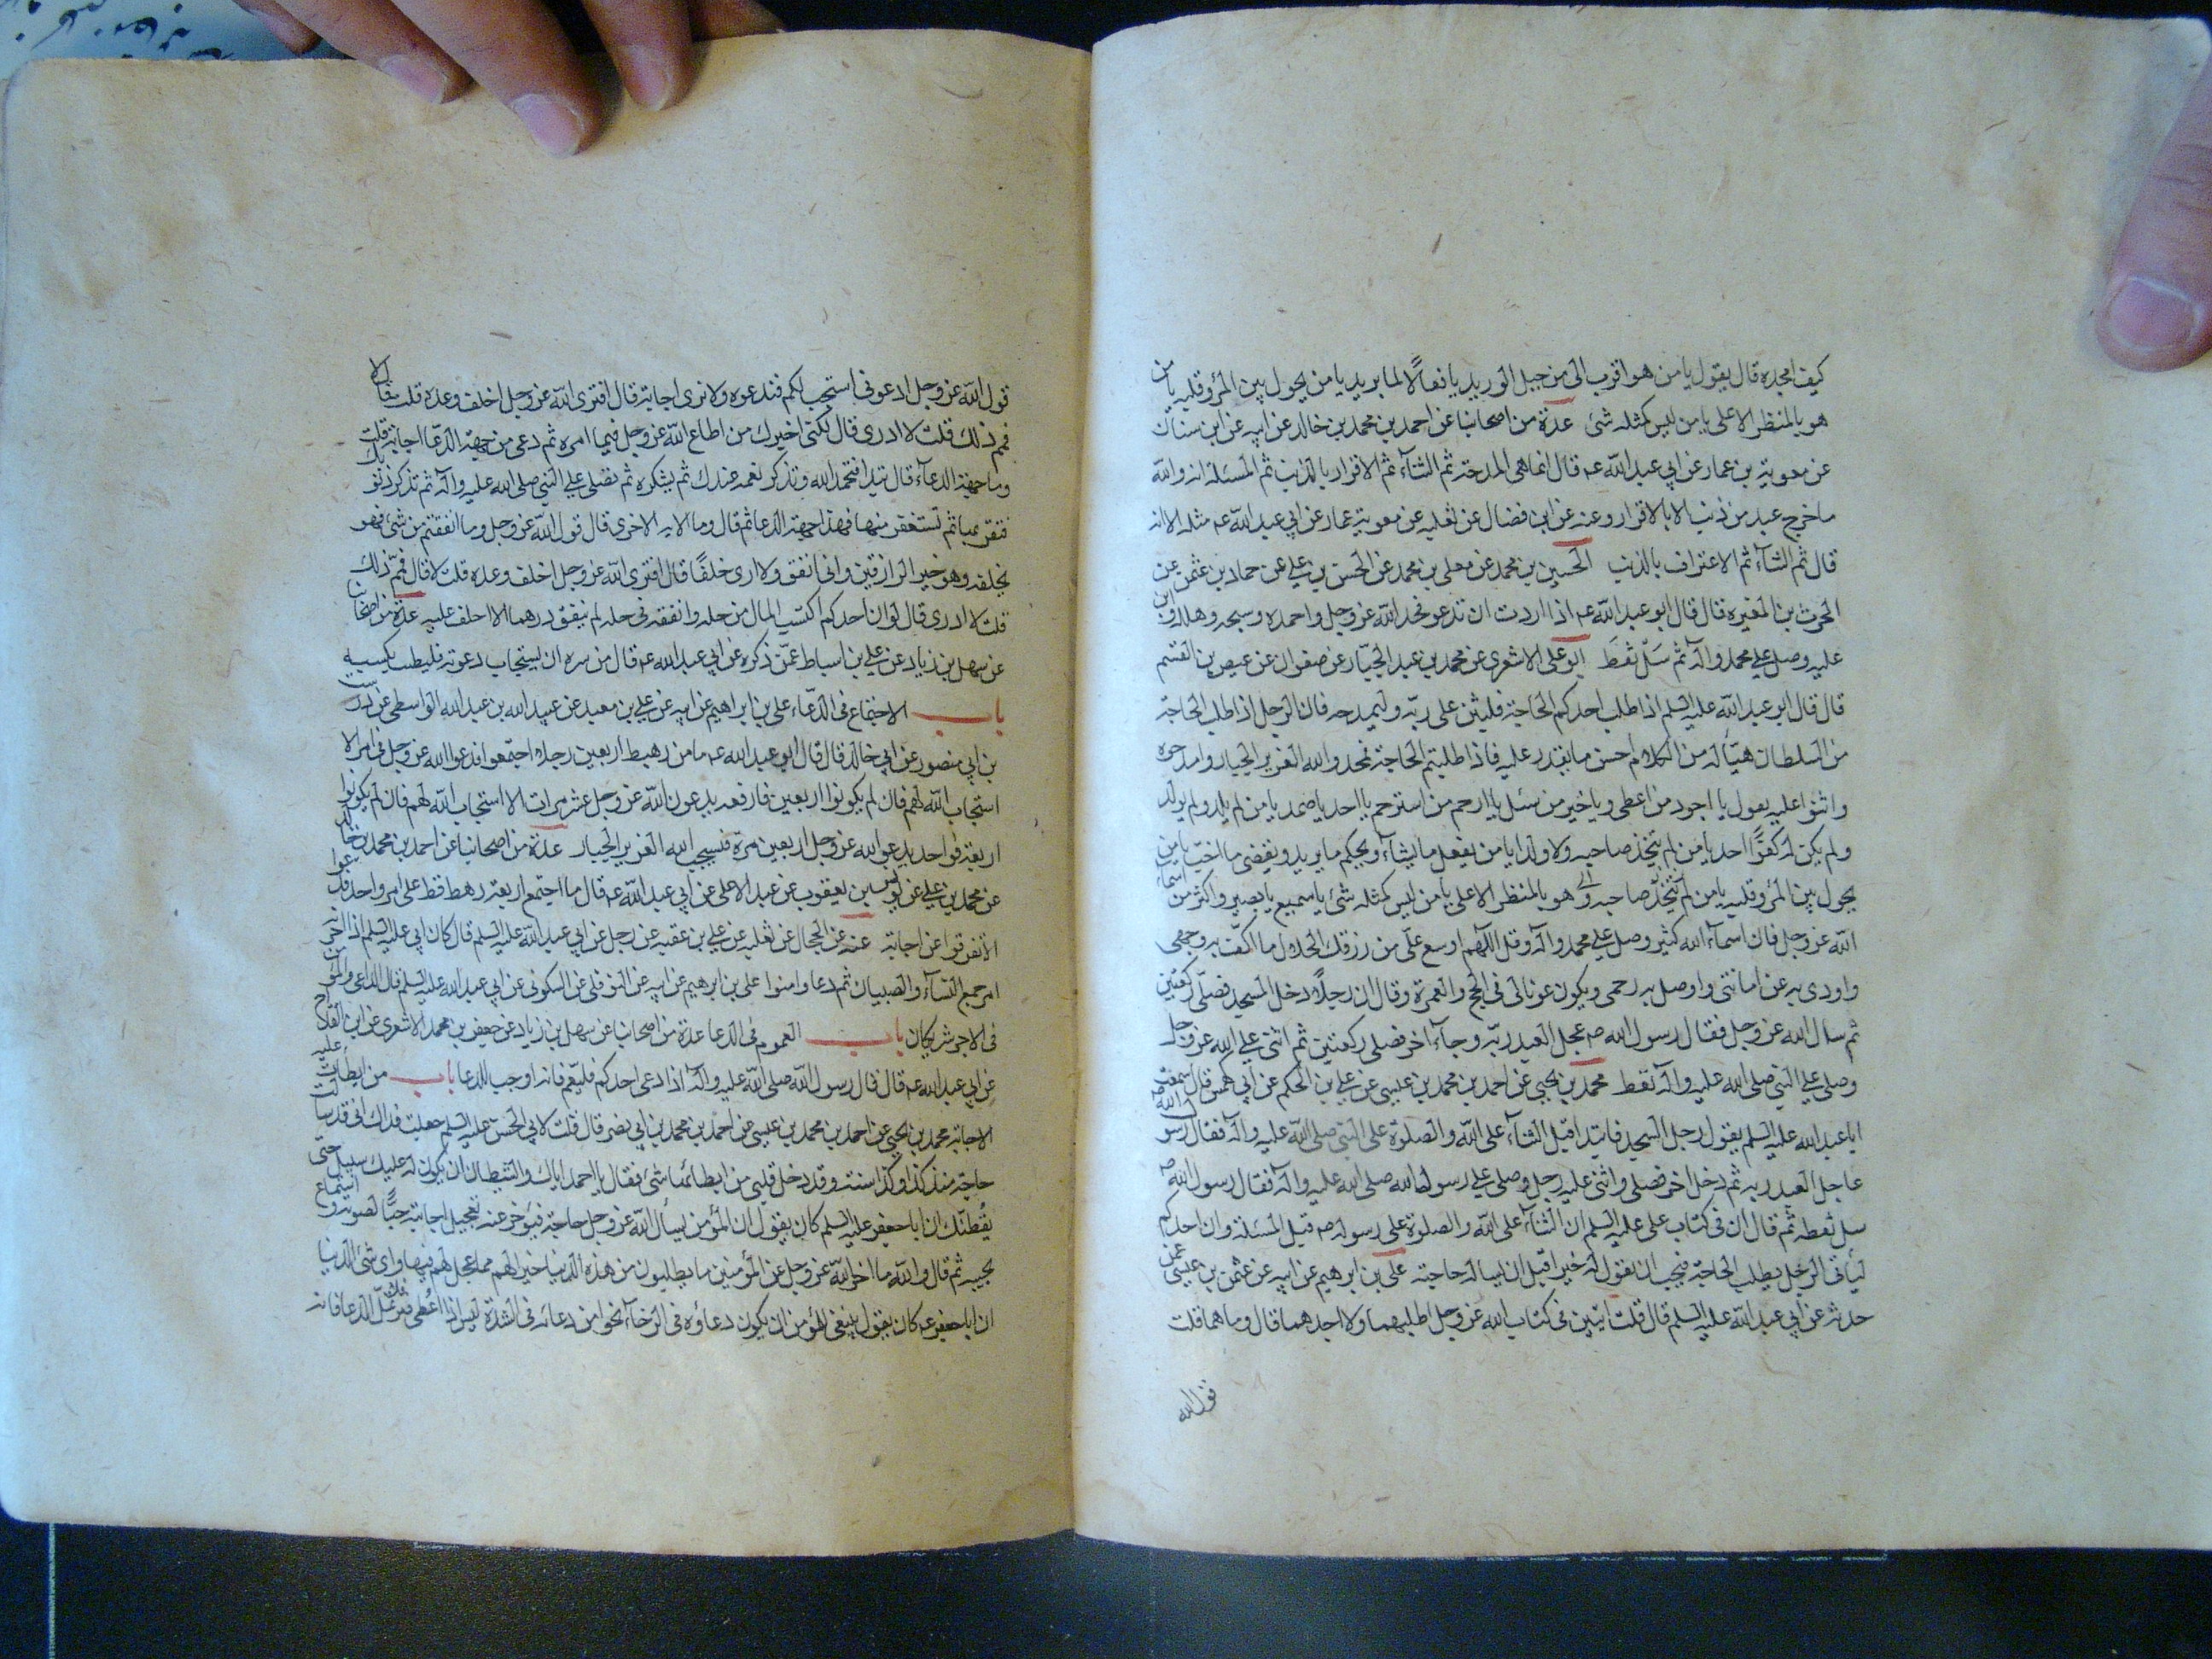 كيف امجده قال يقول يا من هو اقرب الى من حبل الوريد يا فعالا لما يريد يا من يحول بين المرء وقلبه يا من
هو بالمنظر الاعلى يا من ليس كمثله شئ عدة من اصحابنا عن احمد بن محمد بن خالد عن ابيه عن ابن سنان
عن معوية بن عمار عن ابي عبد الله عه قال انما هى المدحة ثم الثناء ثم الاقرار بالذنب ثم المسئلة انه والله
ما خرج عبد من ذنب الا بالاقرار وعنه عن ابن فضال عن ثعلبه عن معوية عمار عن ابي عبد الله عه مثله الا انه
قال ثم الثناء ثم الاعتراف بالذنب الحسين بن محمد عن معلى بن محمد عن الحسن بن علي عن حماد بن عثمن عن
الحرث بن المغيره قال قال ابو عبد الله عه اذا اردت ان تدعو فمجد الله عز وجل واحمده وسبحه وهلله واثن
عليه وصل على محمد واله ثم سل تعط ابو على الاشعرى عن محمد بن عبد الجبار عن صفوان عن عيص بن القسم
قال قال ابو عبد الله عليه السلم اذا طلب احدكم الحاجة فليثن على ربه وليمدحه فان الرجل اذا طلب الحاجة
من السلطان هيأ له من الكلام احسن ما يقدر عليه فاذا طلبتم الحاجة فمجدوا الله العزيز الجبار وامدحوه
واثنوا عليه يقول يا اجود من اعطى ويا خير من سئل يا ارحم من استرحم يا احد يا صمد يا من لم يلد ولم يولد
ولم يكن له كفوا احد يا من لم يتخذ صاحبه ولا ولدا يا من يفعل ما يشاء ويحكم ما يريد ويقضى ما احب يا من
يحول بين المرء وقلبه يا من هو بالمنظر الاعلى يا من ليس كمثله شئ يا سميع يا بصير واكثر من اسماء
الله عز وجل فان اسماء الله كثير وصل على محمد واله وقل اللهم اوسع على من رزقك الحلال ما اكف به وجهى
واودى به عن امانتى واوصل به رحمى ويكون عونا لى فى الحج والعمرة وقال ان رجلا دخل المسجد فصلى ركعتين
ثم سال الله عز وجل فقال رسول الله صه عجل العبد ربه وجاء اخر فصلى ركعتين ثم اثنى على الله عز وجل
وصلى على النبي صلى الله عليه واله تعط محمد بن يحيى عن احمد بن محمد بن عيسى عن علي بن الحكم عن ابي كهمس قال سمعت
ابا عبد الله عليه السلم يقول رجل المسجد فابتدا قبل الثناء على الله والصلوة على النبى صلى الله عليه واله فقال رسول الله صه
عاجل العبد ربه ثم دخل اخر فصلى واثنى عليه رجل وصلى على رسول الله صلى الله عليه واله فقال رسول الله صه
سل تعطه ثم قال ان فى كتاب على عليه السلم ان الثناء على الله والصلوة على رسوله صه قبل المسئلة وان احدكم
ليأتى الرجل يطلب الحاجة فيحب ان يقول له خيرا قبل ان يساله حاجته على بن ابرهيم عن ابيه عن عثمن بن عيسى عمن
حدثه عن ابي عبد الله عليه السلم قال قلت ايتين فى كتاب الله عز وجل اطلبهما ولا اجدهما قال وما هما قلت
قول الله
قول الله عز وجل ادعونى استجب لكم فندعوه ولا نرى اجابة قال افترى الله عز وجل اخلف وعده قلت لا قال
فمم ذلك قلت لا ادرى قال لكنى اخبرك من اطاع الله عز وجل فيما امره ثم دعى من جهة الدعا اجابه قلت
وما جهة الدعاء قال تبدا فتحمد الله وتذكر نعمه عندك ثم يشكره ثم تصلى على النبي صلى الله عليه واله ثم تذكر ذنوبك
فتقر بها ثم تستغفر منها فهذا جهة الدعا ثم قال وما الايه الاخرى قال قول الله عز وجل وما انفقتم من شئ فهو
يخلفه وهو خير الرازقين وانى انفق ولا ارى خلفا قال افترى الله عز وجل اخلف وعده قلت لا قال فمم ذلك
قلت لا ادرى قال لو ان احدكم اكتسب المال من حله وانفقه فى حله لم ينفق درهما الا اخلف عليه عدة من اصحابنا
عن سهل بن زياد عن علي بن اسباط عمن ذكره عن ابي عبد الله عه قال من سره ان يستجاب دعوته فليطب كسبه
باب الاجتماع فى الدعاء على بن ابراهيم عن ابيه عن علي بن معبد عن عبيد الله بن عبد الله الواسطى عن درست
بن ابي منصور عن ابي خالد قال قال ابو عبد الله عه ما من رهط اربعين رجلا اجتمعوا فدعوا الله عز وجل فى امر الا
استجاب الله لهم فان لم يكونوا اربعين فاربعه يدعون الله عز وجل عشر مرات الا استجاب الله لهم فان لم يكونوا
اربعة فواحد يدعو الله عز وجل اربعين مرة فيستجيب الله العزيز الجبار عدة من اصحابنا عن احمد بن محمد بن خالد
عن محمد بن علي عن يونس بن يعقوب عن عبد الاعلى عن ابي عبد الله عه قال ما اجتمع اربعة رهط قط على امر واحد فدعوا
الا تفرقوا عن اجابة عنه عن الحجال عن ثعلبه عن علي بن عقبه عن رجل عن ابي عبد الله عليه السلم قال كان ابي عليه السلم اذا احزنه
امر جمع النساء والصبيان ثم دعا وامنوا على بن ابرهيم عن ابيه عن النوفلى عن السكونى عن ابي عبد الله عليه السلم قال الداعى والمؤمن
فى الاجر شريكان باب العموم فى الدعا عدة من اصحابنا عن سهل بن زياد عن جعفر بن محمد الاشعرى عن ابن القداح
عن ابي عبد الله عه قال قال رسول الله صلى الله عليه واله اذا دعى احدكم فليعم فانه اوجب للدعا باب من ابطأت عليه
الاجابة محمد بن يحيى عن احمد بن محمد بن عيسى عن احمد بن محمد بن ابي نصر قال قلت لابي الحسن عليه السلم جعلت فداك انى قد سالت
حاجة منذ كذا وكذا سنة وقد دخل قلبى من ابطائها شئ فقال يا احمد اياك والشيطان ان يكون له عليك سبيل حتى
يقنطك ان ابا جعفر عليه السلم كان يقول ان المؤمن يسأل الله عز وجل حاجة فيؤخر عنه تعجيل اجابته حبا لصوته واستماع
نحيبه ثم قال والله ما اخر الله عز وجل عن المؤمنين ما يطلبون من هذه الدنيا خير لهم مما عجل لهم فيها واى شئ الدنيا
ان ابا جعفر عه كان يقول ينبغى للمؤمن ان يكون دعاؤه فى الرخاء نحوا من دعائه فى الشدة ليس اذا اعطى فتر تمل الدعا فانه